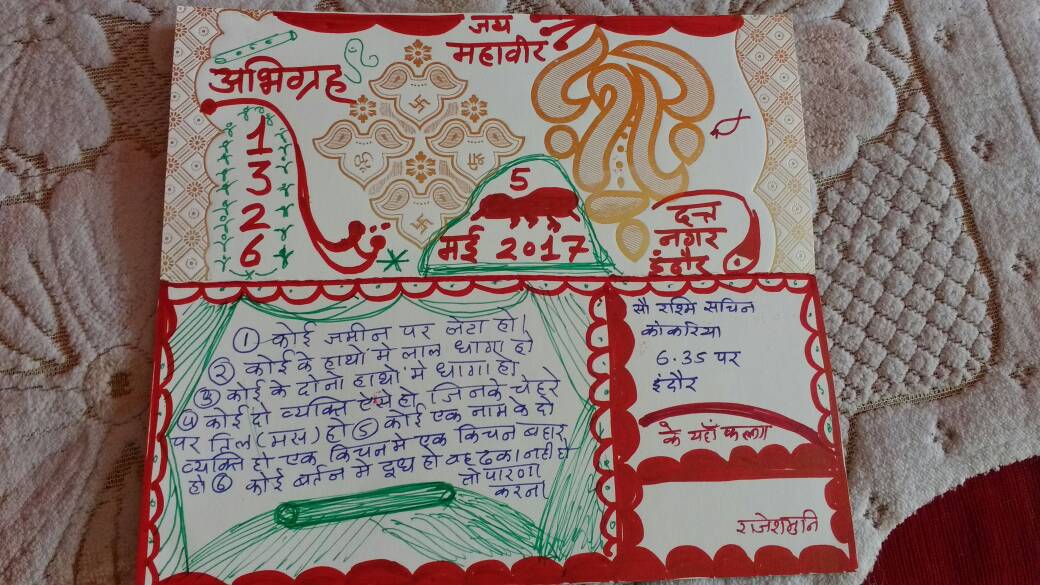 जय
महावीर
अभिग्रह
1
3
2
6
5
मई 2017
दत्त
नगर
इंदौर
① कोई जमीन पर लेटा हो।
② कोई के हाथो मे लाल धागा हो
③ कोई के दोनो हाथो मे धागा हो
④ कोई दो व्यक्ति ऐसे हो, जिनके चेहरे
पर तिल (मस) हो ⑤ कोई एक नाम के दो
व्यक्ति हो एक किचन मे एक किचन बहार
हो ⑥ कोई बर्तन मे दूध हो वह ढका नही हो
तो पारणा
करना
सौ रश्मि सचिन
कांकरिया
6.35 पर
इंदौर
के यहाँ फलग
राजेशमुनि